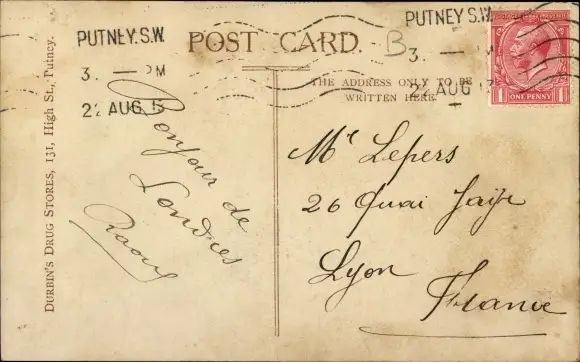 PUTNEY.S.W.
3. — PM
22 AUG 13
POST CARD.
B
PUTNEY S.W.
3. —
22 AUG 13
ONE PENNY
THE ADDRESS ONLY TO BE
WRITTEN HERE.
DURBIN'S DRUG STORES, 131, High St., Putney.
Bonjour de
Londres
Raoul
Mr Lepers
26 Quai
Lyon
France